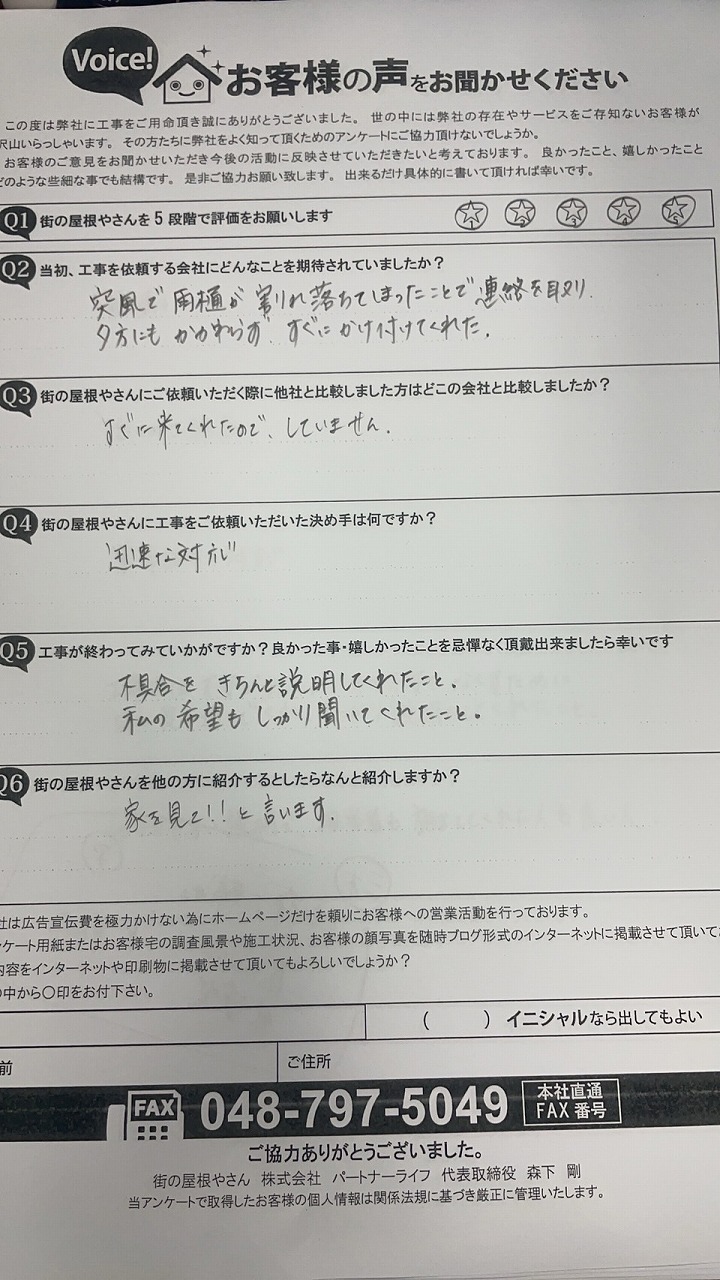 Voice!
お客様の声をお聞かせください
この度は弊社に工事をご用命頂き誠にありがとうございました。 世の中には弊社の存在やサービスをご存知ないお客様が
沢山いらっしゃいます。 その方たちに弊社をよく知って頂くためのアンケートにご協力頂けないでしょうか。
お客様のご意見をお聞かせいただき今後の活動に反映させていただきたいと考えております。 良かったこと、嬉しかったこと
どのような些細な事でも結構です。 是非ご協力お願い致します。 出来るだけ具体的に書いて頂ければ幸いです。
Q1 街の屋根やさんを5段階で評価をお願いします 1 2 3 4 5
Q2 当初、工事を依頼する会社にどんなことを期待されていましたか？
突風で雨樋が割れ落ちてしまったことで連絡を取り
夕方にもかかわらず、すぐにかけ付けてくれた。
Q3 街の屋根やさんにご依頼いただく際に他社と比較しました方はどこの会社と比較しましたか？
すぐに来てくれたので、していません。
Q4 街の屋根やさんに工事をご依頼いただいた決め手は何ですか？
迅速な対応
Q5 工事が終わってみていかがですか？良かった事・嬉しかったことを忌憚なく頂戴出来ましたら幸いです
不具合をきちんと説明してくれたこと。
私の希望もしっかり聞いてくれたこと。
Q6 街の屋根やさんを他の方に紹介するとしたらなんと紹介しますか？
家を見て!!と言います。
社は広告宣伝費を極力かけない為にホームページだけを頼りにお客様への営業活動を行っております。
ンケート用紙またはお客様宅の調査風景や施工状況、お客様の顔写真を随時ブログ形式のインターネットに掲載させて頂いてお
内容をインターネットや印刷物に掲載させて頂いてもよろしいでしょうか？
の中から〇印をお付下さい。
（　　　）イニシャルなら出してもよい
前
ご住所
FAX 048-797-5049 本社直通 FAX番号
ご協力ありがとうございました。
街の屋根やさん 株式会社 パートナーライフ 代表取締役 森下 剛
当アンケートで取得したお客様の個人情報は関係法規に基づき厳正に管理いたします。